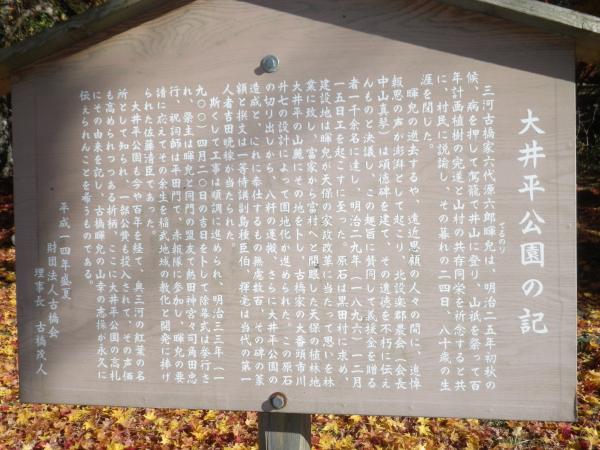 大井平公園の記
三河古橋家六代源六郎暉皃は、明治二五年初秋の
てるのり
候、病を押して駕籠で井山に登り、山祇を祭って百
年計画植樹の完遂と山村の共存同栄を祈念すると共
に、村民に説諭し、その暮れの二四日、八十歳の生
涯を閉じた。
暉皃の逝去するや、遠近思顧の人々の間に、追悼
報恩の声が澎湃として起こり、北設楽郡農会(会長
中山真琴)は頌徳碑を建て、その遺徳を不朽に伝え
んものと決議し、この趣旨に賛同して義援金を贈る
者一千余名に達し、明治二九年(一八九六)一二月
一五日工を起こすに至った。原石は黒田村に求め、
建設地は暉皃が天保の家政改革に当たって思いを林
業に致し、富家から富村へと開眼した天保の植林地
大井平の山麓にその地を卜し、古橋家の大番頭市川
升七の設計によって園地化が進められた。この原石
の切り出しから、人料の運搬、さらに大井平公園の
造成と、これに奉仕するもの無慮数百、その碑の篆
額と撰文は一等侍講副島種臣伯、揮毫は当代の第一
人者吉田晩稼が当たられた。
斯くして工事は順調に進み、明治三三年(一
九〇〇)四月二〇日の吉日を卜して除幕式は挙行さ
れ、祭主は暉皃と同門の盟友で熱田神宮々司角田忠
行、祝詞師は平田門で、赤報隊に参加し、暉皃の要
請に応えてその余生を稲武地域の教化と開発に捧げ
られた佐藤清臣であった。
大井平公園も今や百年を経、奥三河の紅葉の名
所として知られ、一部公費も投入されて、その声価
も高められつつある折柄、ここに大井平公園の高札
にその由来を記し、古橋暉皃の山幸の志操が永久に
伝えられんことを希うものである。
平成一四年盛夏
財団法人古橋会
理事長 古橋茂人